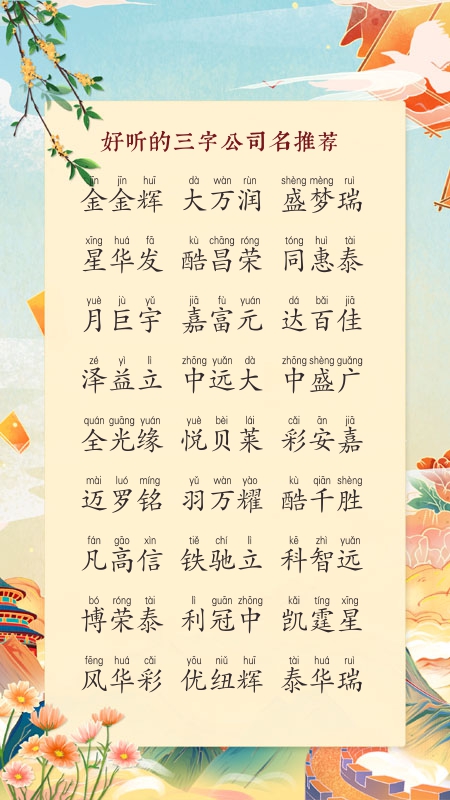 好听的三字公司名推荐
jīn jīn huī dà wàn rùn shèng mèng ruì
金金辉 大万润 盛梦瑞
xīng huá fā kù chāng róng tóng huì tài
星华发 酷昌荣 同惠泰
yuè jù yǔ jiā fù yuán dá bǎi jiā
月巨宇 嘉富元 达百佳
zé yì lì zhōng yuǎn dà zhōng shèng guǎng
泽益立 中远大 中盛广
quán guāng yuán yuè bèi lái cǎi ān jiā
全光缘 悦贝莱 彩安嘉
mài luó míng yǔ wàn yào kù qiān shèng
迈罗铭 羽万耀 酷千胜
fán gāo xìn tiě chí lì kē zhì yuǎn
凡高信 铁驰立 科智远
bó róng tài lì guān zhōng kǎi tíng xīng
博荣泰 利冠中 凯霆星
fēng huá cǎi yōu niǔ huī tài huá ruì
风华彩 优纽辉 泰华瑞